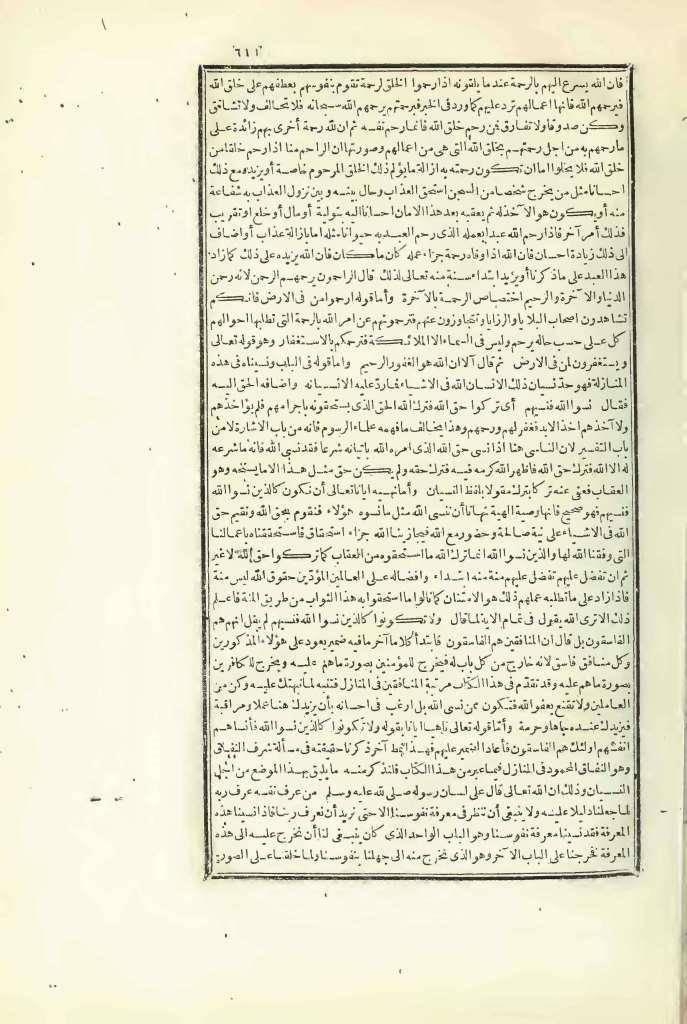 ٦١١
فان الله يسرع اليهم بالرحمة عند ما يلقونه اذا رحموا الخلق لرحمة تقوم بنفوسهم يعطفهم على خلق الله
فيرحمهم الله فانها اعمالهم ترد عليهم كما ورد فى الخبر فبرحمتهم يرحمهم الله سبحانه فلا تخالف ولا تشاقق
وكن صدوقا ولا تفارق فمن رحم خلق الله فانما رحم نفسه ثم ان لله رحمة أخرى بهم زائدة على
مارحمهم به من اجل رحمتهم بخلق الله التى هى من اعمالهم وصورتها ان الراحم منا اذا رحم خلقا من
خلق الله فلا يخلوا ما ان تكون رحمته به ازالة ما يؤلم ذلك الخلق المرحوم خاصة أو يزيده مع ذلك
احسانا مثل من يخرج شخصا من السجن استحق العذاب وحال بينه وبين نزول العذاب به شفاعة
منه أو يكون هو الآخذ له ثم يعقبه بعد هذا الامان احسانا اليه بتولية أو مال أو خلع او تقريب
فذلك أمر آخر فاذا رحم الله عبدا بعمله الذى رحم العبد به حيوانا مثله اما بازالة عذاب أو اضاف
الى ذلك زيادة احسان فان الله اذا وفاه رحمة جزاء عمله كان ما كان فان الله يزيده على ذلك كما زاد
هذا العبد على ماذكرنا أو يزيد ابتداء منة منه تعالى لذلك قال الراحمون يرحمهم الرحمن لانه رحمن
الدنيا والآخرة والرحيم اختصاص الرحمة بالآخرة وأما قوله ارحموا من فى الارض فانكم
تشاهدون اصحاب البلايا والرزايا وتتجاوزون عنهم فترحمونهم عن امر الله بالرحمة التى تطلبها احوالهم
كل على حسب حاله يرحم وليس فى السماء الا الملائكة فترحمكم بالاستغفار وهو قوله تعالى
ويستغفرون لمن فى الارض ثم قال ألا ان الله هو الغفور الرحيم واما قوله فى الباب ونسيناه فى هذه
المنازلة فهو حد نسيان ذلك الانسان الله فى الاشياء فما رد عليه الا نسيانه واضافه الحق اليه
فقال نسوا الله فنسيهم أى تركوا حق الله فترك الله الحق الذى يستحقونه باجرامهم فلم يؤاخذهم
ولا آخذهم اخذ الابد فغفر لهم ورحمهم وهذا يخالف ما فهمه علماء الرسوم فانه من باب الاشارة لا من
باب التفسير لان الناسى هنا اذا نسى حق الله الذى امره الله باتيانه شرعا فقد نسى الله فانه ما شرعه
له الا الله فترك حق الله فاظهر الله كرمه فيه فترك حقه ولم يكن حق مثل هذا الا ما يستحقه وهو
العقاب فعفى عنه تركا بترك مقولا بلفظ النسيان وأما نهيه ايانا تعالى أن نكون كالذين نسوا الله
فنسيهم فهو صحيح فانها وصية الهية نهانا أن ننسى الله مثل ما نسوه هؤلاء فنقوم بحق الله ونقيم حق
الله فى الاشياء على نية صالحة وحضور مع الله فيجازينا الله جزاء استحقاق فاستحققناه باعمالنا
التى وفقنا الله لها والذين نسوا الله انما ترك الله ما استحقوه من العقاب كما تركوا حق الله لا غير
ثم ان تفضل عليهم تفضل عليهم منة منه ابتداء وافضاله على العالمين المؤدين حقوق الله ليس منة
فاذا زاد على ما تطلبه عملهم ذلك هو الامتنان كما نالوا ما استحقوا به هذا الثواب من طريق المنة فاعلم
ذلك الا ترى الله يقول فى تمام الآية لما قال ولا تكونوا كالذين نسوا الله فنسيهم لم يقل انهم هم
الفاسقون بل قال ان المنافقين هم الفاسقون فابتدأ كلاما آخر ما فيه ضمير يعود على هؤلاء المذكورين
وكل منافق فاسق لانه خارج من كل باب له فيخرج للمؤمنين بصورة ما هم عليه ويخرج للكافرين
بصورة ما هم عليه وقد تقدم فى هذا الكتاب مرتبة المنافقين فى المنازل فتنبه لما نبهتك عليه وكن من
العاملين ولا تقنع بعفو الله فتكون ممن نسى الله بل ارغب فى احسانه بأن يزيدك هنا عملا ومراقبة
فيزيدك عنده جاها وحرمة وأما قوله تعالى ناهيا ايانا بقوله ولا تكونوا كالذين نسوا الله فأنساهم
انفسهم اولئك هم الفاسقون فأعاد الضمير عليهم فهذا النمط آخر ذكرنا حقيقته فى مسألة شرف النفاق
وهو النفاق المحمود فى المنازل فيما عبر من هذا الكتاب فلنذكر منه ما يليق بهذا الموضع من اجل
النسيان وذلك ان الله تعالى قال على لسان رسوله صلى الله عليه وسلم من عرف نفسه عرف ربه
لما جعلنا دليلا عليه ولا ينبغى أن ننظر فى معرفة نفوسنا الا حتى نريد أن نعرف ربنا فاذا نسينا هذه
المعرفة فقد نسينا معرفة نفوسنا وهو الباب الواحد الذى كان ينبغى لنا أن نخرج عليه الى هذه
المعرفة فخرجنا على الباب الآخر وهو الذى نخرج منه الى جهلنا بنفوسنا ولما خلقنا على الصورة